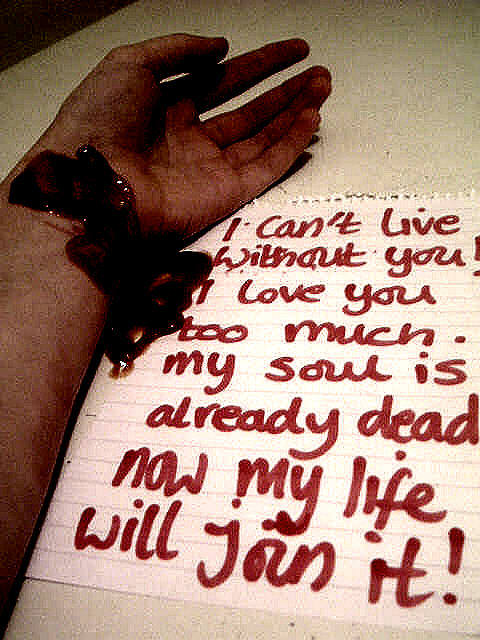 I can't live
without you!
I love you
too much.
my soul is
already dead
now my life
will join it!